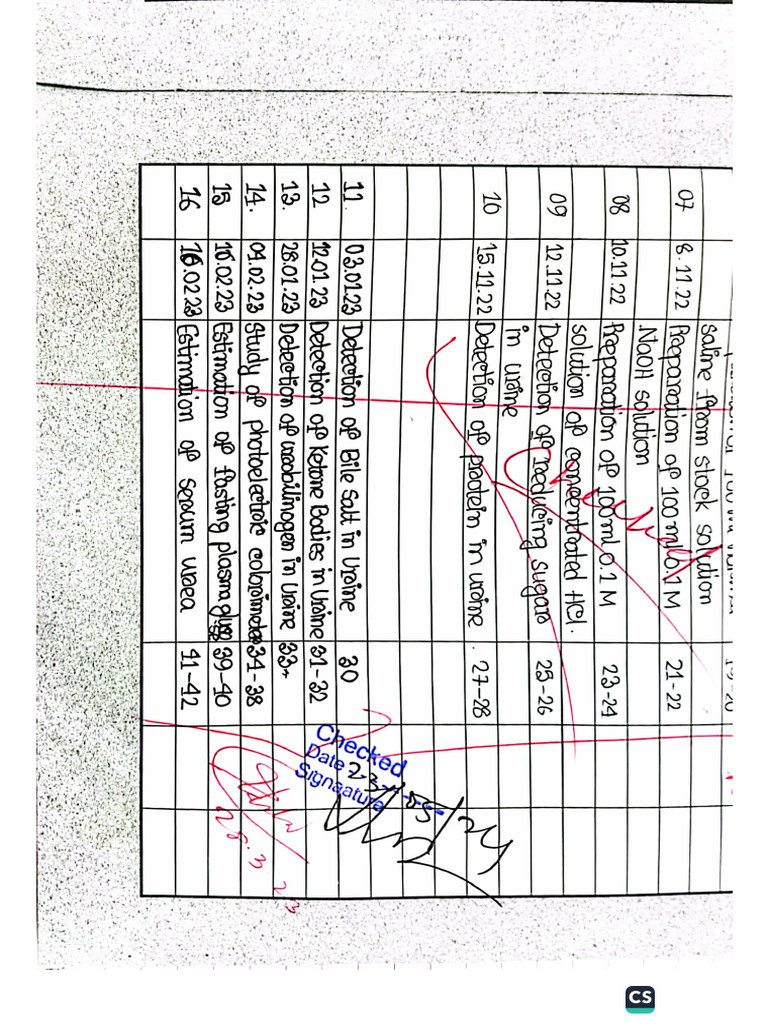 saline from stock solution
07 8.11.22 Preparation of 100 ml 0.1 M 21-22
NaOH solution
08 10.11.22 Preparation of 100 ml 0.1 M 23-24
solution of concentrated HCl.
09 12.11.22 Detection of reducing sugar 25-26
in urine
10 15.11.22 Detection of protein in urine. 27-28
Checked
11. 03.01.23 Detection of Bile Salt in Urine 30
12 12.01.23 Detection of Ketone Bodies in Urine 31-32
13. 28.01.23 Detection of urobilinogen in Urine 33
14. 04.02.23 Study of photoelectric colorimeter 34-38
15 15.02.23 Estimation of fasting plasma 39-40
16 16.02.23 Estimation of serum urea 41-42
Checked
Date 23/05/24
Signaature
28.3 23
CS